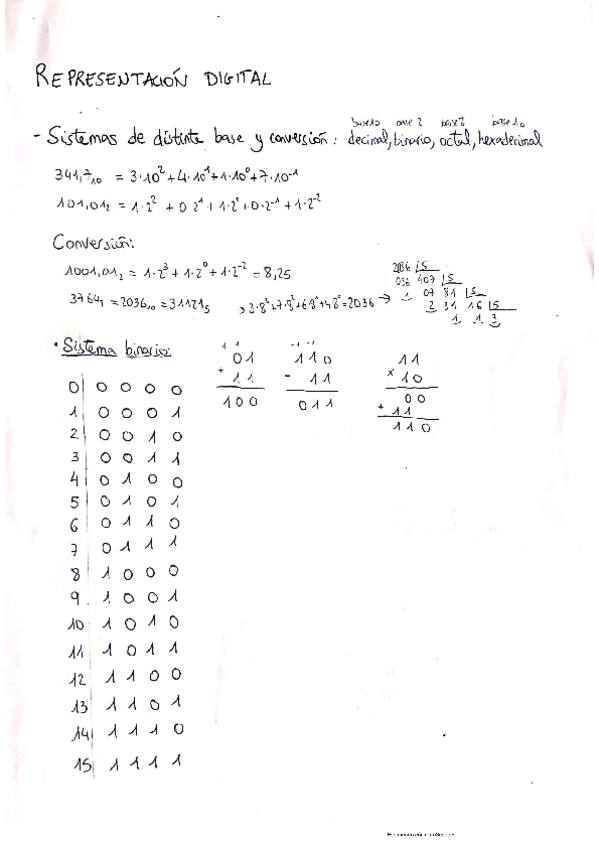 REPRESENTACIÓN DIGITAL
base10 base 2 base8 base 10
- Sistemas de distinte base y conversión: decimal, binario, octal, hexadecimal
341,7₁₀ = 3·10² + 4·10¹ + 1·10⁰ + 7·10⁻¹
101,01₂ = 1·2² + 0 2¹ + 1·2⁰ + 0·2⁻¹ + 1·2⁻²
Conversión:
1001,01₂ = 1·2³ + 1·2⁰ + 1·2⁻² = 8,25
= 2036₁₀ = 31121₅ → 3·8³ + 7·8² + 6·8¹ + 4·8⁰ = 2036 →
2036 5
036 407 5
1 07 81 5
2 31 16 5
1 1 3
• Sistema binario:
1 1
01
+ 11
100
110
- 11
011
11
× 10
00
+ 11
110
0 0 0 0 0
1 0 0 0 1
2 0 0 1 0
3 0 0 1 1
4 0 1 0 0
5 0 1 0 1
6 0 1 1 0
7 0 1 1 1
8 1 0 0 0
9 1 0 0 1
10 1 0 1 0
11 1 0 1 1
12 1 1 0 0
13 1 1 0 1
14 1 1 1 0
15 1 1 1 1